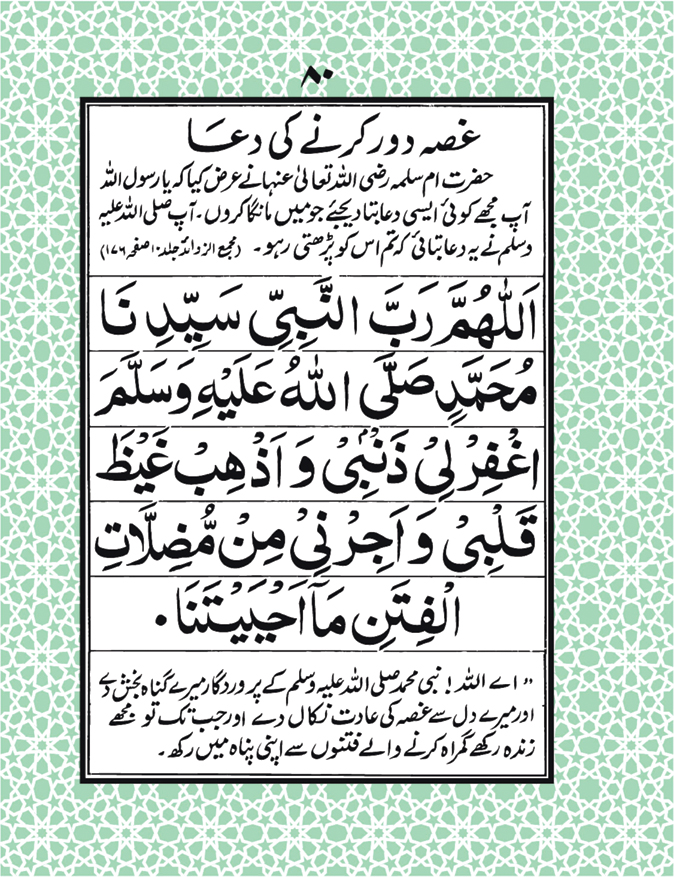 ۸۰
غصہ دور کرنے کی دعا
حضرت ام سلمہ رضی اللہ تعالیٰ عنہا نے عرض کیا کہ یا رسول اللہ
آپ مجھے کوئی ایسی دعا بتا دیجئے جو میں مانگا کروں۔ آپ صلی اللہ علیہ
وسلم نے یہ دعا بتائی کہ تم اس کو پڑھتی رہو۔ (مجمع الزوائد جلد ۱۰ صفحہ ۱۷۶)
اَللّٰهُمَّ رَبَّ النَّبِيِّ سَيِّدِنَا
مُحَمَّدٍ صَلَّى اللّٰهُ عَلَيْهِ وَسَلَّمَ
اغْفِرْ لِيْ ذَنْۢبِيْ وَاَذْهِبْ غَيْظَ
قَلْبِيْ وَاَجِرْنِيْ مِنْ مُّضِلَّاتِ
الْفِتَنِ مَآ اَحْيَيْتَنَا۔
”اے اللہ! نبی محمد صلی اللہ علیہ وسلم کے پروردگار میرے گناہ بخش دے
اور میرے دل سے غصہ کی عادت نکال دے اور جب تک تو مجھے
زندہ رکھے گمراہ کرنے والے فتنوں سے اپنی پناہ میں رکھ۔